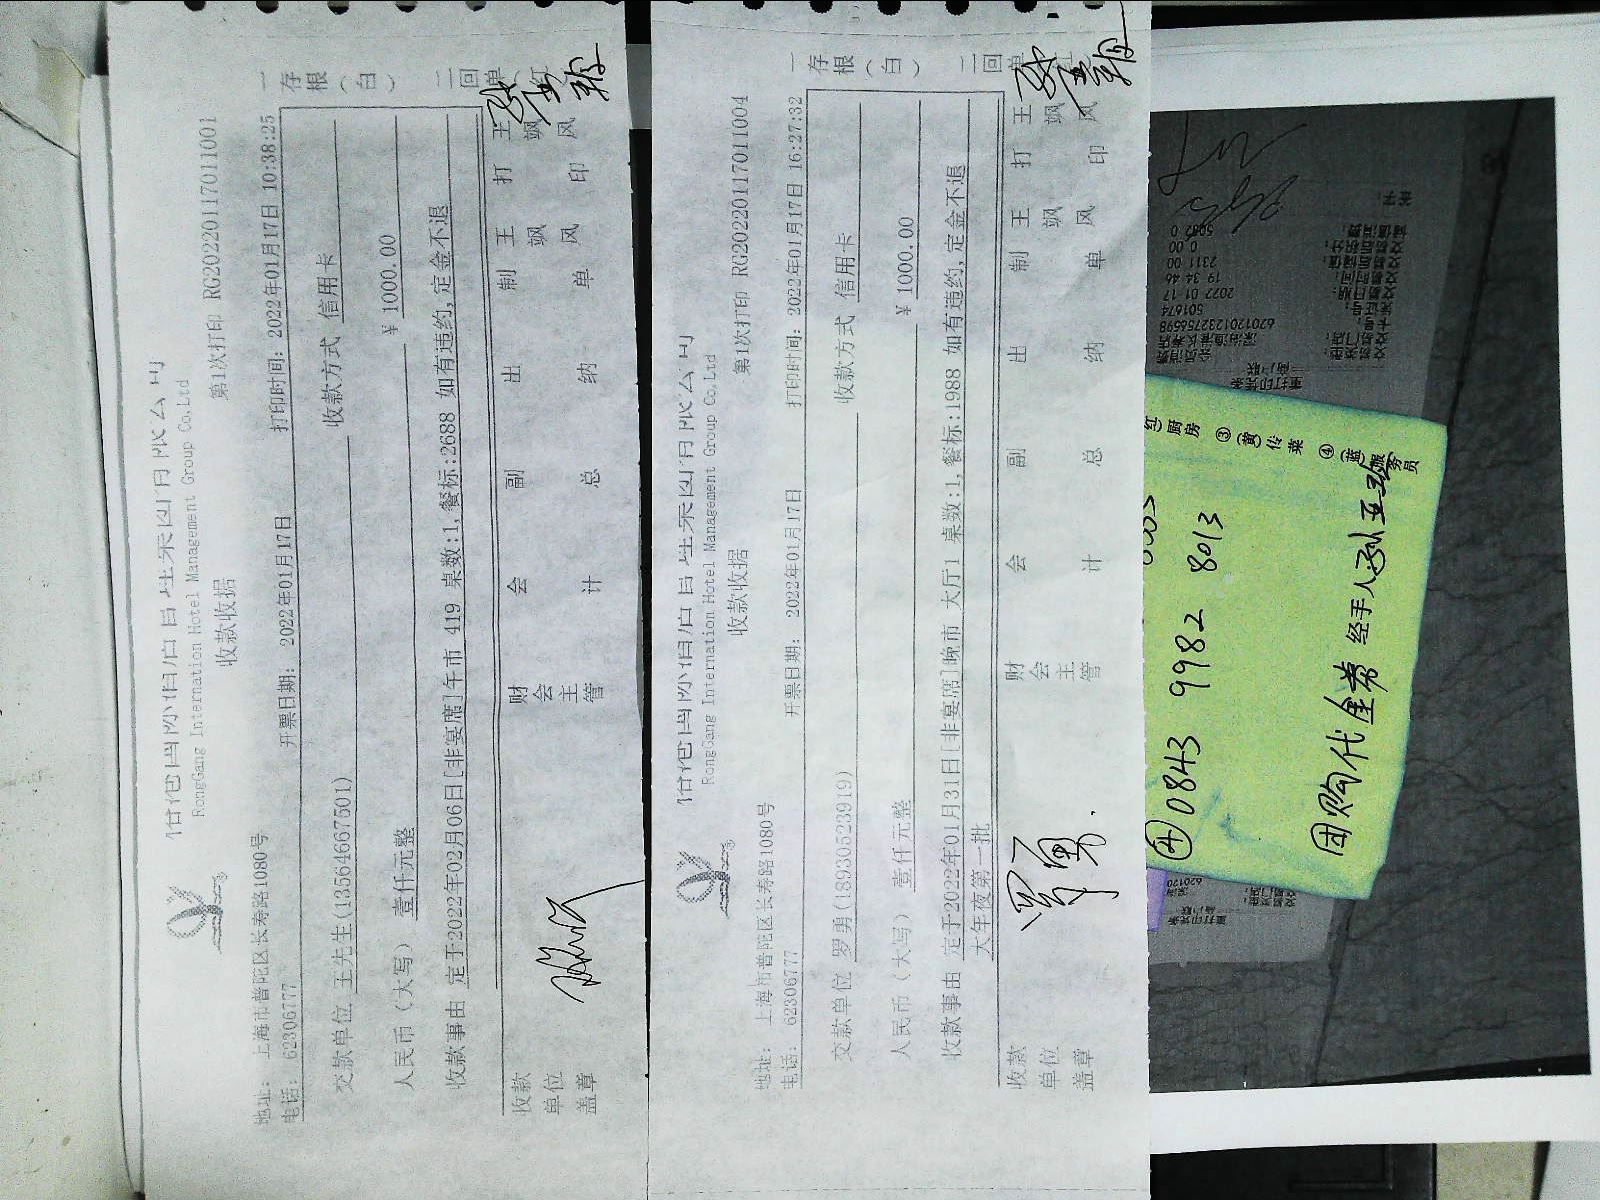 RongGang International Hotel Management Group Co,Ltd
收款收据
第1次打印 RG20220117011001
地址: 上海市普陀区长寿路1080号
电话: 62306777
开票日期: 2022年01月17日
打印时间: 2022年01月17日 10:38:25
交款单位 王先生(13564667501)
收款方式 信用卡
人民币（大写） 壹仟元整
￥1000.00
收款事由 定于2022年02月06日[非宴席]午市 419 桌数:1,餐标:2688 如有违约,定金不退
一存根（白）
收款单位盖章
财会主管
会计
副总
出纳
制单
王飒风
打印
王飒风
RongGang International Hotel Management Group Co.Ltd
收款收据
第1次打印 RG20220117011004
地址: 上海市普陀区长寿路1080号
电话: 62306777
开票日期: 2022年01月17日
打印时间: 2022年01月17日 16:27:32
交款单位 罗勇(18930523919)
收款方式 信用卡
人民币（大写） 壹仟元整
￥1000.00
收款事由 定于2022年01月31日[非宴席]晚市 大厅1 桌数:1,餐标:1988 如有违约,定金不退
大年夜第一批
一存根（白）
收款单位盖章
财会主管
会计
副总
出纳
制单
王飒风
打印
王飒风
罗勇
④0843 9982 8013
团购代金券 经手人
厨房 ③(黄)传菜 ④(蓝)服务员
重打印凭条
商户联
6201201232756598
501674
2022 01 17
19 34 46
2311 00
0 00